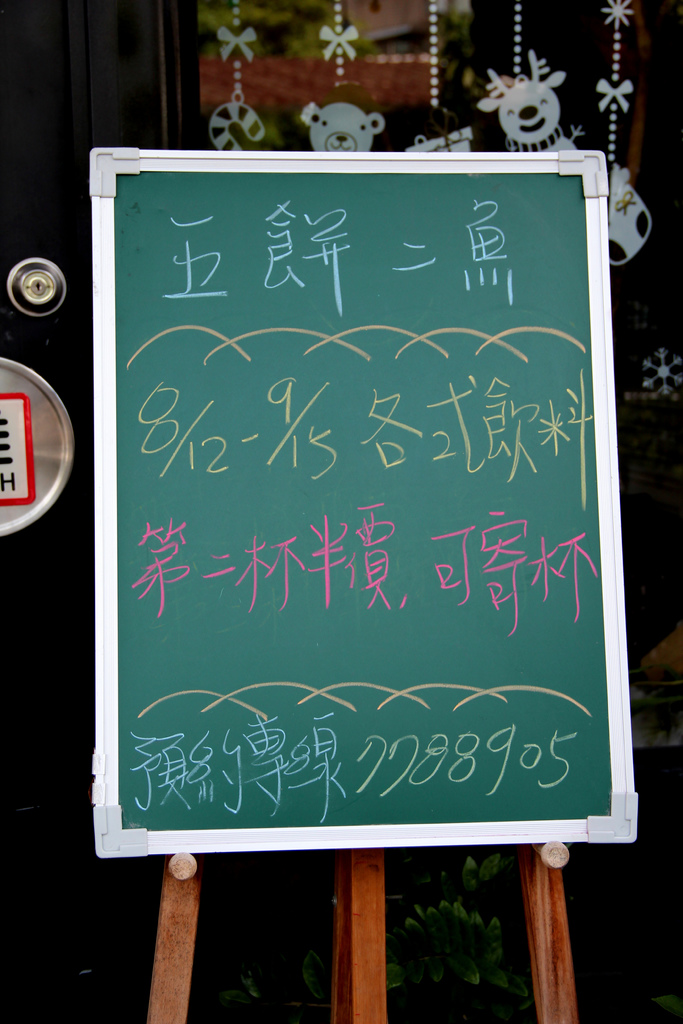 五餅二魚
8/12-9/15 各式飲料
第二杯半價,可寄杯
預約專線 7788905
H